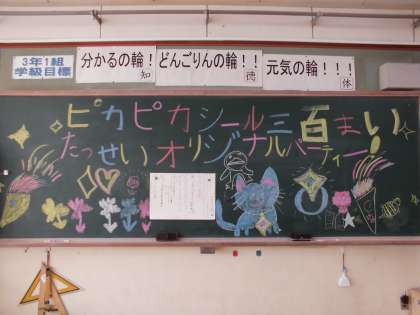 3年1組
学級目標
分かるの輪!
知
どんごりんの輪!!
徳
元気の輪!!!
体
ピカピカシール三百まい
たっせいオリジナルパーティー!